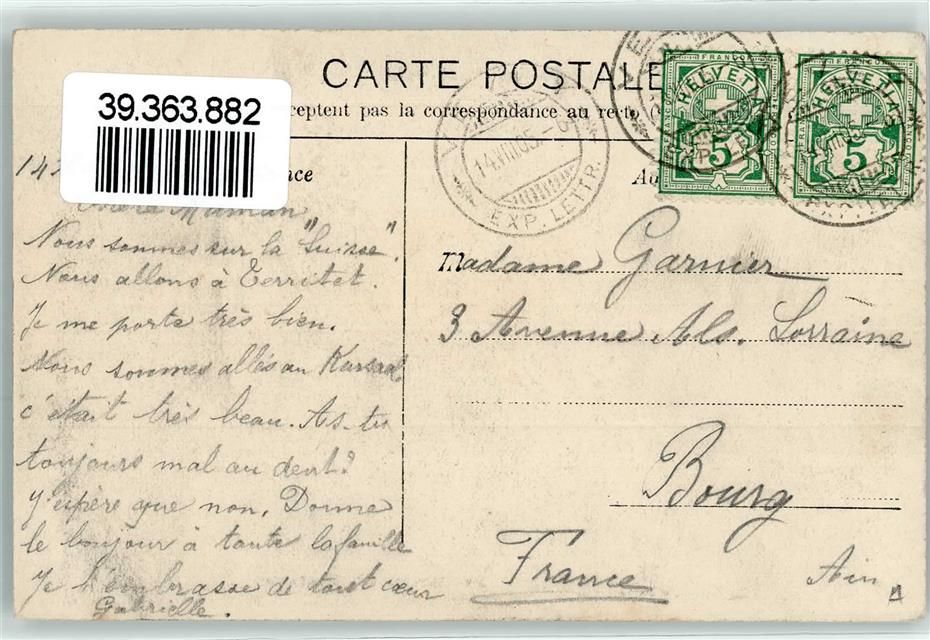 CARTE POSTALE
39.363.882
ceptent pas la correspondance au recto
Maman
Nous sommes sur la "Suisse".
Nous allons à Territet.
Je me porte très bien.
Nous sommes allés au Kursaal
c'était très beau. As-tu
toujours mal au dent?
J'espère que non. Donne
le bonjour à toute la famille
Je t'embrasse de tout cœur
Gabrielle.
FRANCO
HELVETIA
5
FRANCO
HELVETIA
5
14.VIII.05.
EXP. LETTR.
Madame Garnier
3 Avenue Als. Lorraine
Bourg
France
Ain